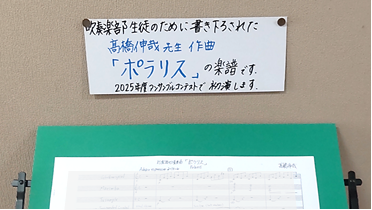 吹奏楽部生徒のために書き下ろされた
高橋伸哉 先生 作曲
「ポラリス」の楽譜です.
2025年度アンサンブルコンテストで初演します.
「ポラリス」